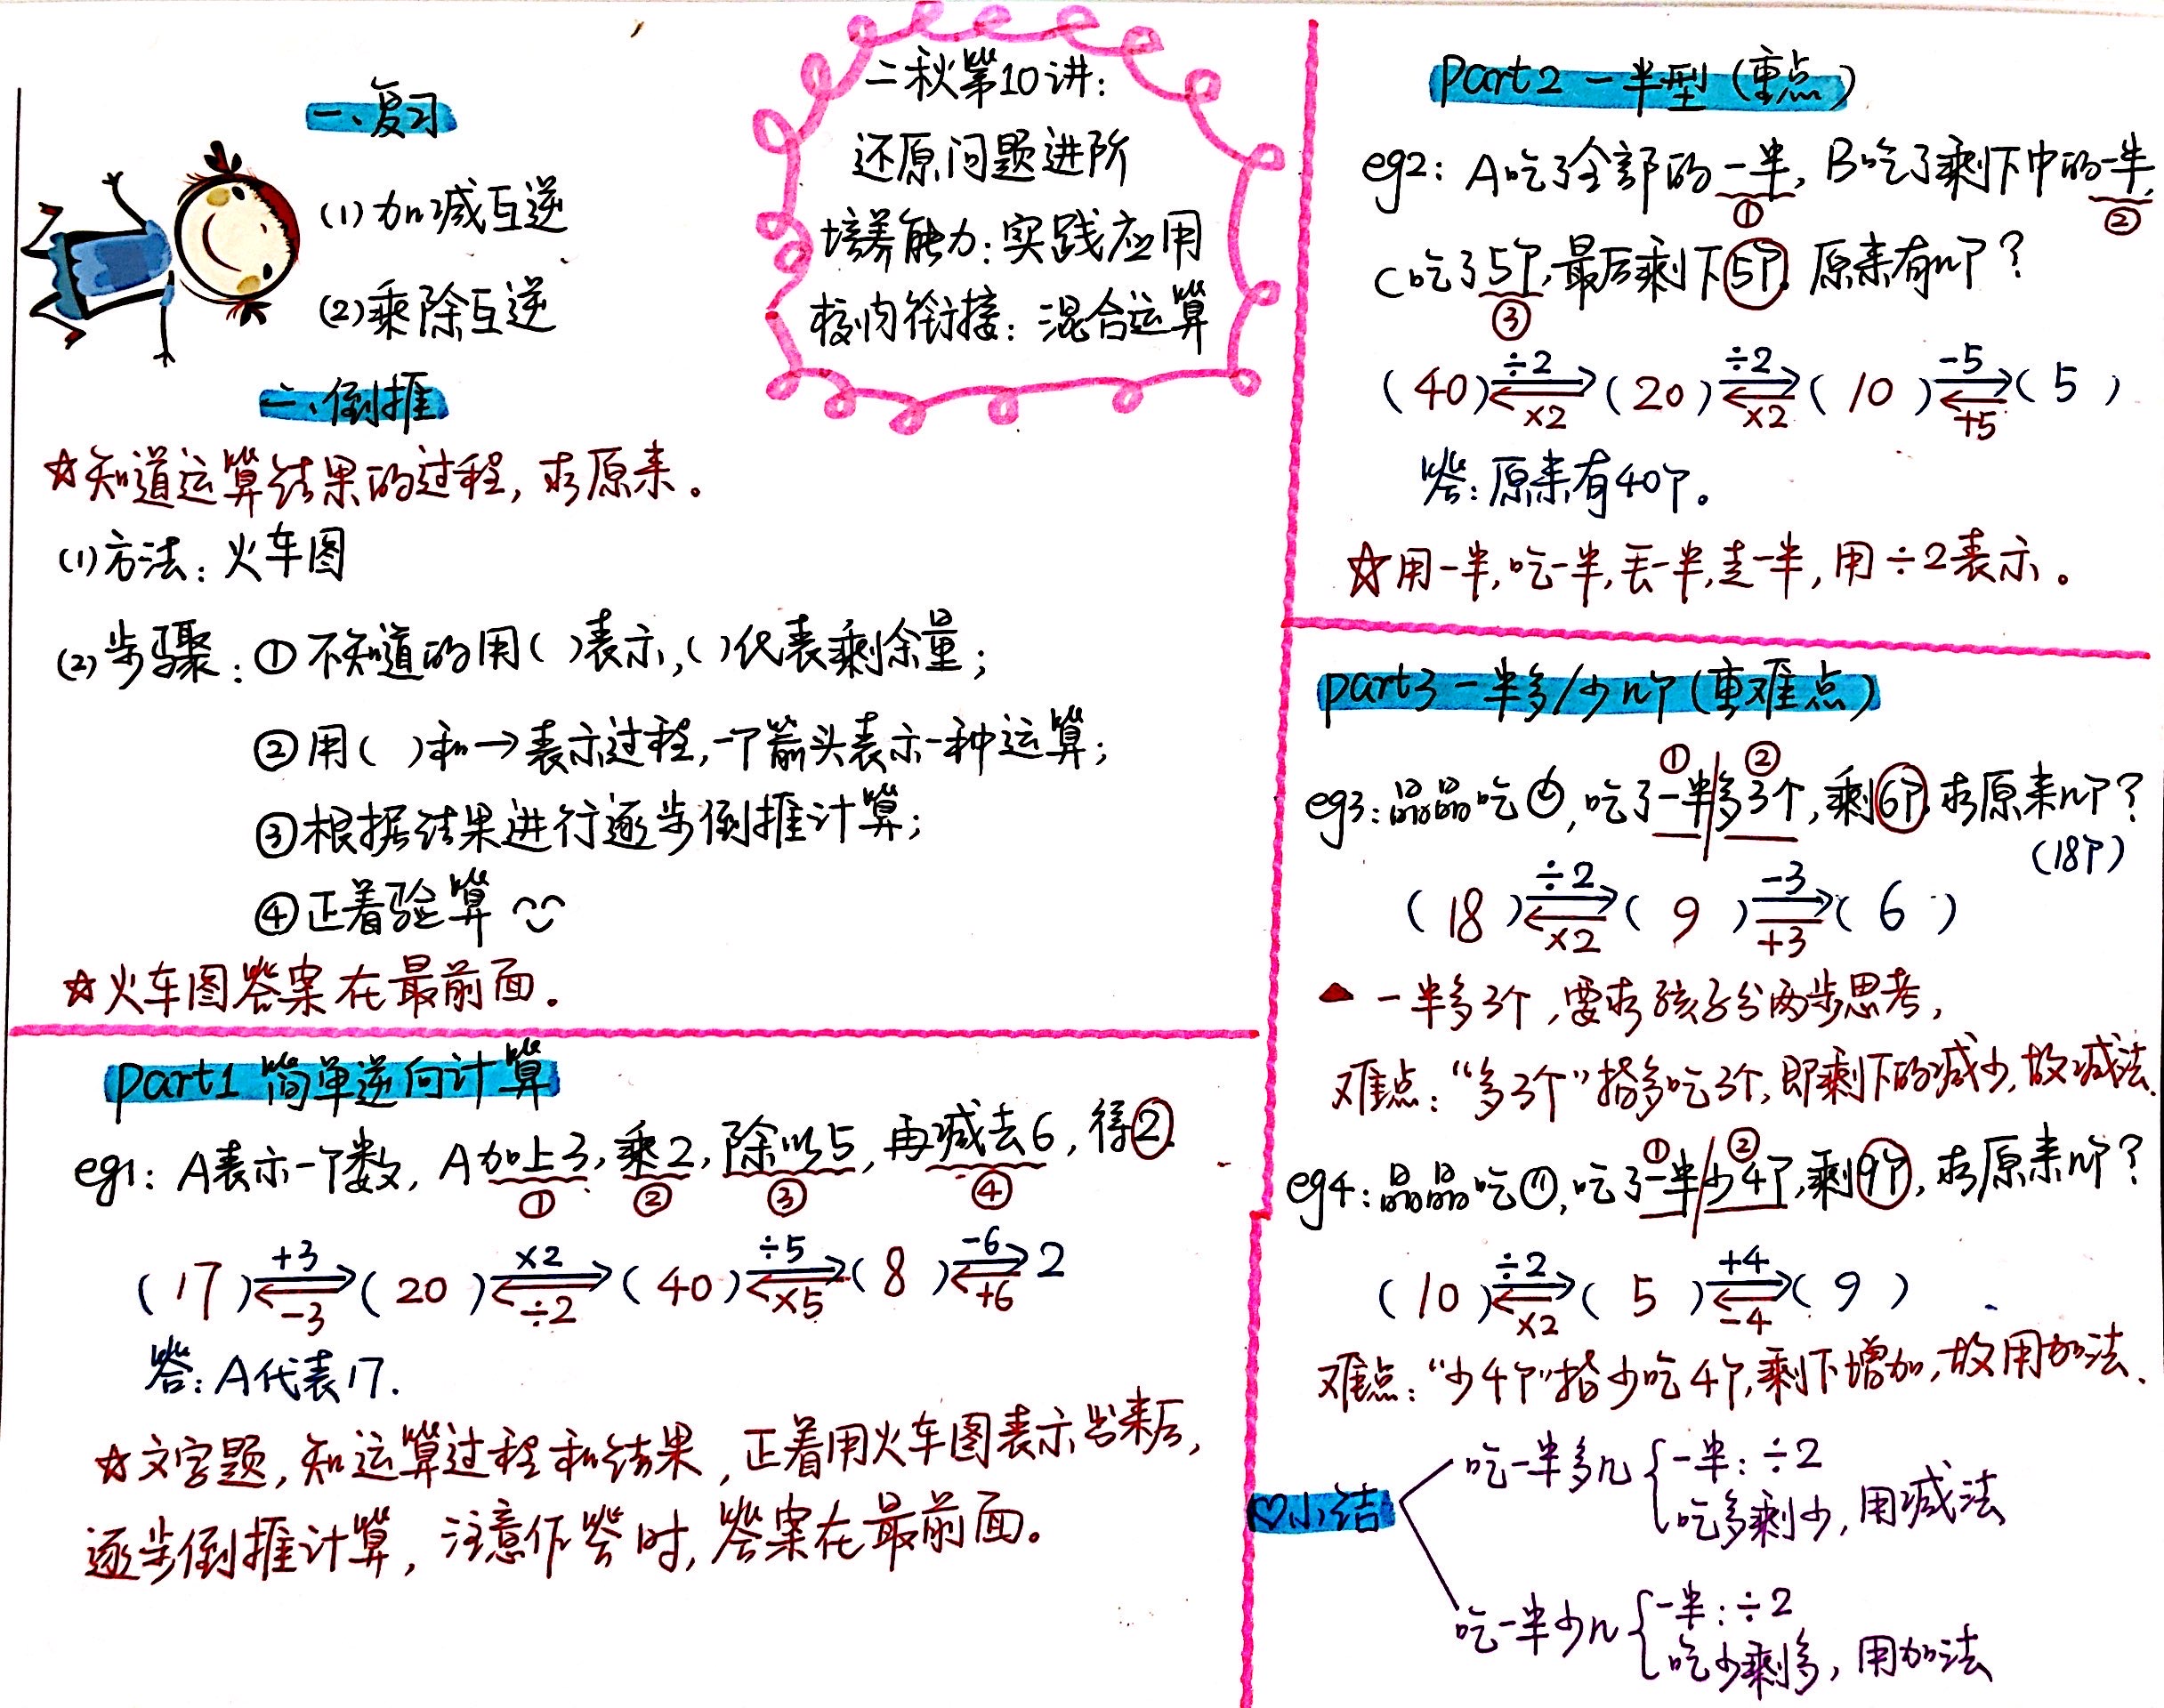 二秋第10讲:
还原问题进阶
培养能力:实践应用
校内衔接:混合运算
一、复习
(1)加减互逆
(2)乘除互逆
二、倒推
☆知道运算结果的过程,求原来。
(1)方法:火车图
(2)步骤:①不知道的用( )表示,( )代表剩余量;
②用( )和→表示过程,一个箭头表示一种运算;
③根据结果进行逐步倒推计算;
④正着验算
☆火车图答案在最前面.
part1 简单逆向计算
eg1: A表示一个数, A加上3, 乘2, 除以5, 再减去6, 得②.
① ② ③ ④
+3 ×2 ÷5 -6
(17) ⇄ (20) ⇄ (40) ⇄ (8) ⇄ 2
-3 ÷2 ×5 +6
答: A代表17.
☆文字题,知运算过程和结果,正着用火车图表示出来后,
逐步倒推计算,注意作答时,答案在最前面。
part2 一半型(重点)
eg2: A吃了全部的一半, B吃了剩下中的一半,
① ②
C吃了5个,最后剩下5个. 原来有n个?
③
÷2 ÷2 -5
(40) ⇄ (20) ⇄ (10) ⇄ (5)
×2 ×2 +5
答:原来有40个。
☆用一半,吃一半,丢一半,走一半,用÷2表示。
part3 一半多/少n个(重难点)
① ②
eg3: 晶晶吃,吃了一半/多3个,剩6个,求原来n个?
(18个)
÷2 -3
(18) ⇄ (9) ⇄ (6)
×2 +3
▲一半多3个,要求孩子分两步思考,
难点:“多3个”指多吃3个,即剩下的减少,故减法.
① ②
eg4: 晶晶吃,吃了一半/少4个,剩9个,求原来n个?
÷2 +4
(10) ⇄ (5) ⇄ (9)
×2 -4
难点:“少4个”指少吃4个,剩下增加,故用加法.
♡小结
吃一半多n { 一半: ÷2
吃多剩少,用减法
吃一半少n { 一半: ÷2
吃少剩多,用加法